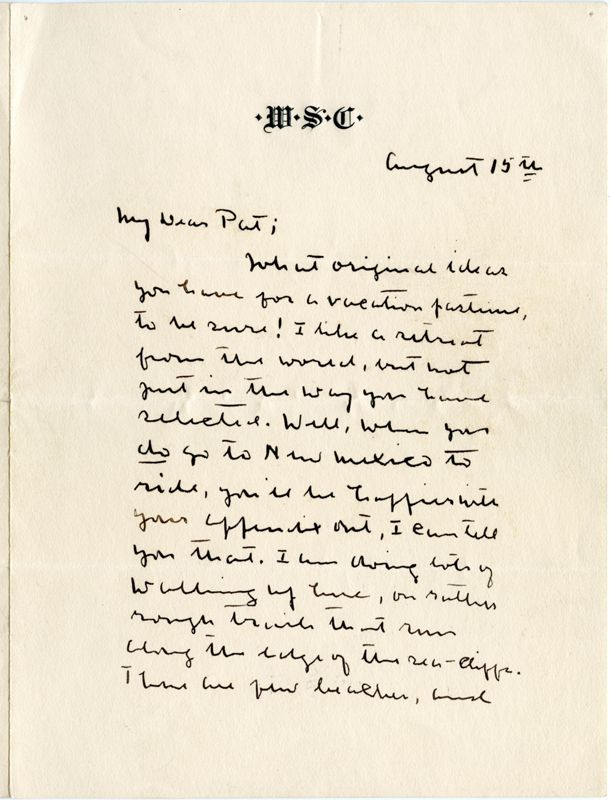 ·W·S·C·
August 15th
My Dear Pat;
What original ideas
you have for a vacation pastime,
to be sure! I like a retreat
from the world, but not
just in the way you have
selected. Well, when you
do go to New Mexico to
ride, you'll be happier with
your appendix out, I can tell
you that. I am doing lots of
walking up here, on rather
rough trails that run
along the edge of the sea-cliffs.
There are few beaches, and